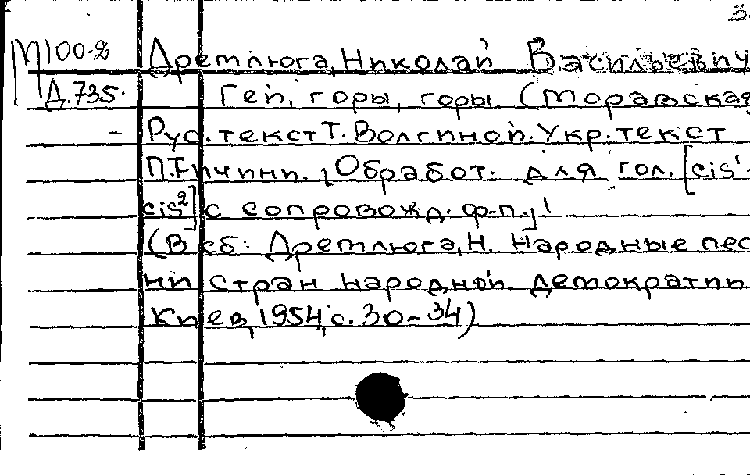 3
М100-%
Дремлюга, Николай Васильевич
Д.735.
Гей, горы, горы. (Моравская
- Рус. текст Т. Волгиной. Укр. текст
П. Тичини. [Обработ. для гол. [cis¹-
cis²] с сопровожд. ф-п.]!
(В сб: Дремлюга, Н. Народные пес
ни стран народной демократии
Киев, 1954, с. 30-34)